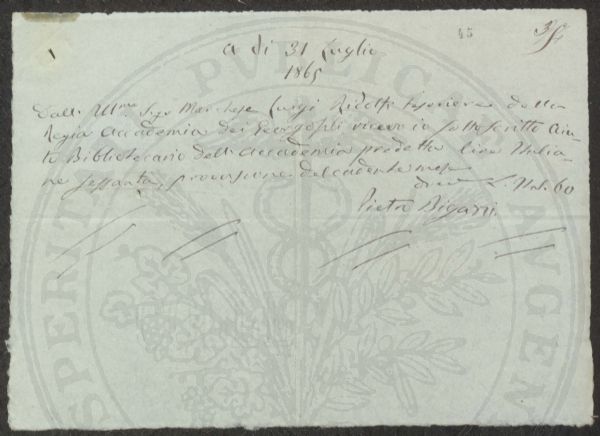 45
A dì 31 Luglio
1865
Dall' Ill.mo Sig.r Marchese Luigi Ridolfi Tesoriere della
Regia Accademia dei Georgofili ricevo io sottoscritto Aiu-
to Bibliotecario dell' Accademia predetta Lire Italia-
ne sessanta, provvisione del cadente mese
dico L. Ital. 60
Pietro Bigazzi
PUBLICAE
PROSPERITATI AUGENDAE